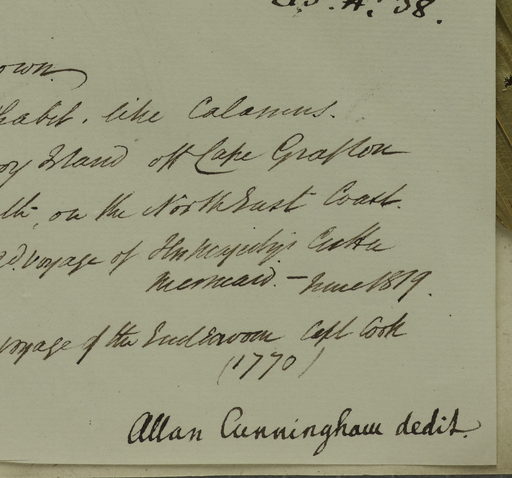 38.
own.
habit. like Calamus.
Island off Cape Grafton
on the North East Coast.
voyage of His Majesty's Cutter
Mermaid. — June 1819.
voyage of the Endeavour Capt Cook
(1770)
Allan Cunningham dedit.